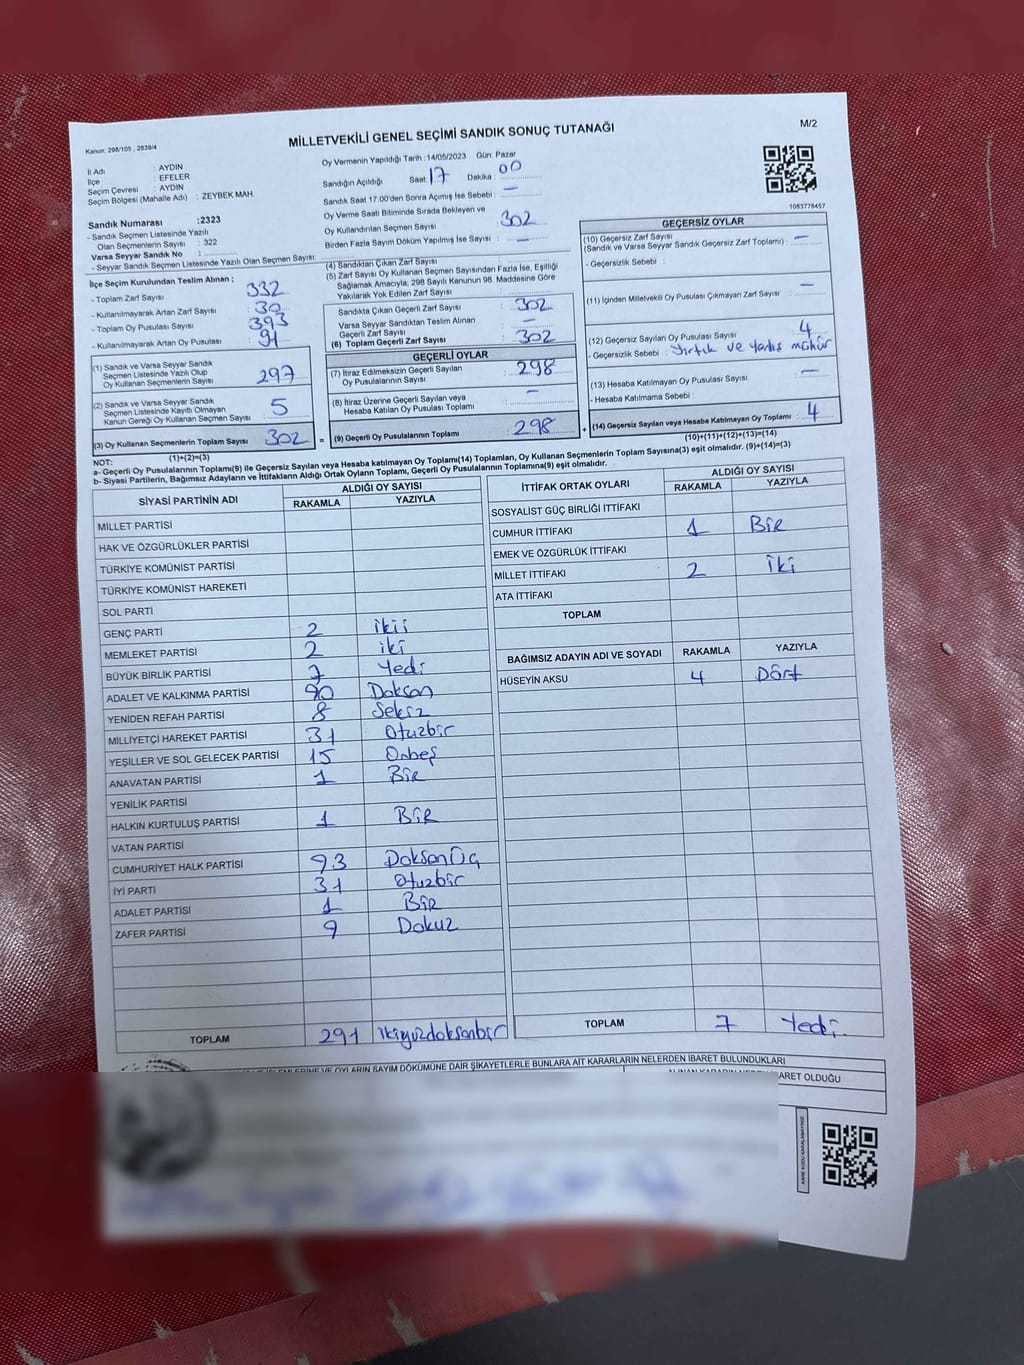 M/2
Kanun: 298/105 , 2839/4
MİLLETVEKİLİ GENEL SEÇİMİ SANDIK SONUÇ TUTANAĞI
İl Adı : AYDIN
İlçe : EFELER
Seçim Çevresi : AYDIN
Seçim Bölgesi (Mahalle Adı) : ZEYBEK MAH.
Sandık Numarası :2323
- Sandık Seçmen Listesinde Yazılı
Olan Seçmenlerin Sayısı : 322
Varsa Seyyar Sandık No :
- Seyyar Sandık Seçmen Listesinde Yazılı Olan Seçmen Sayısı:
Oy Vermenin Yapıldığı Tarih :14/05/2023 Gün: Pazar
Sandığın Açıldığı Saat: 17 Dakika: 00
Sandık Saat 17:00'den Sonra Açılmış İse Sebebi : —
Oy Verme Saati Bitiminde Sırada Bekleyen ve
Oy Kullandırılan Seçmen Sayısı : 302
Birden Fazla Sayım Döküm Yapılmış İse Sayısı : —
1083778457
İlçe Seçim Kurulundan Teslim Alınan ;
- Toplam Zarf Sayısı : 332
- Kullanılmayarak Artan Zarf Sayısı : 30
- Toplam Oy Pusulası Sayısı : 393
- Kullanılmayarak Artan Oy Pusulası : 91
(1) Sandık ve Varsa Seyyar Sandık
Seçmen Listesinde Yazılı Olup
Oy Kullanan Seçmenlerin Sayısı : 297
(2) Sandık ve Varsa Seyyar Sandık
Seçmen Listesinde Kayıtlı Olmayan
Kanun Gereği Oy Kullanan Seçmen Sayısı : 5
(3) Oy Kullanan Seçmenlerin Toplam Sayısı 302
(1)+(2)=(3)
(4) Sandıktan Çıkan Zarf Sayısı :
(5) Zarf Sayısı Oy Kullanan Seçmen Sayısından Fazla İse, Eşitliği
Sağlamak Amacıyla, 298 Sayılı Kanunun 98. Maddesine Göre
Yakılarak Yok Edilen Zarf Sayısı :
Sandıkta Çıkan Geçerli Zarf Sayısı : 302
Varsa Seyyar Sandıktan Teslim Alınan
Geçerli Zarf Sayısı : —
(6) Toplam Geçerli Zarf Sayısı : 302
GEÇERLİ OYLAR
(7) İtiraz Edilmeksizin Geçerli Sayılan
Oy Pusulalarının Sayısı : 298
(8) İtiraz Üzerine Geçerli Sayılan veya
Hesaba Katılan Oy Pusulası Toplamı : —
= (9) Geçerli Oy Pusulalarının Toplamı : 298 +
GEÇERSİZ OYLAR
(10) Geçersiz Zarf Sayısı
(Sandık ve Varsa Seyyar Sandık Geçersiz Zarf Toplamı) : —
- Geçersizlik Sebebi :
(11) İçinden Milletvekili Oy Pusulası Çıkmayan Zarf Sayısı : —
(12) Geçersiz Sayılan Oy Pusulası Sayısı : 4
- Geçersizlik Sebebi : Yırtık ve Yanlış mühür
(13) Hesaba Katılmayan Oy Pusulası Sayısı : —
- Hesaba Katılmama Sebebi :
(14) Geçersiz Sayılan veya Hesaba Katılmayan Oy Toplamı : 4
(10)+(11)+(12)+(13)=(14)
NOT:
a- Geçerli Oy Pusulalarının Toplamı(9) ile Geçersiz Sayılan veya Hesaba katılmayan Oy Toplamı(14) Toplamları, Oy Kullanan Seçmenlerin Toplam Sayısına(3) eşit olmalıdır. (9)+(14)=(3)
b- Siyasi Partilerin, Bağımsız Adayların ve İttifakların Aldığı Ortak Oyların Toplamı, Geçerli Oy Pusulalarının Toplamına(9) eşit olmalıdır.
SİYASİ PARTİNİN ADI ALDIĞI OY SAYISI
RAKAMLA YAZIYLA
MİLLET PARTİSİ
HAK VE ÖZGÜRLÜKLER PARTİSİ
TÜRKİYE KOMÜNİST PARTİSİ
TÜRKİYE KOMÜNİST HAREKETİ
SOL PARTİ
GENÇ PARTİ 2 ikii
MEMLEKET PARTİSİ 2 iki
BÜYÜK BİRLİK PARTİSİ 7 Yedi
ADALET VE KALKINMA PARTİSİ 90 Doksan
YENİDEN REFAH PARTİSİ 8 Sekiz
MİLLİYETÇİ HAREKET PARTİSİ 31 Otuzbir
YEŞİLLER VE SOL GELECEK PARTİSİ 15 Onbeş
ANAVATAN PARTİSİ 1 BİR
YENİLİK PARTİSİ
HALKIN KURTULUŞ PARTİSİ 1 BİR
VATAN PARTİSİ
CUMHURİYET HALK PARTİSİ 93 DoksanÜç
İYİ PARTİ 31 Otuzbir
ADALET PARTİSİ 1 BİR
ZAFER PARTİSİ 9 Dokuz
TOPLAM 291 ikiyüzdoksanbir
İTTİFAK ORTAK OYLARI ALDIĞI OY SAYISI
RAKAMLA YAZIYLA
SOSYALİST GÜÇ BİRLİĞİ İTTİFAKI
CUMHUR İTTİFAKI 1 BİR
EMEK VE ÖZGÜRLÜK İTTİFAKI
MİLLET İTTİFAKI 2 İki
ATA İTTİFAKI
TOPLAM
BAĞIMSIZ ADAYIN ADI VE SOYADI RAKAMLA YAZIYLA
HÜSEYİN AKSU 4 Dört
TOPLAM 7 Yedi
OYLARIN SAYIM DÖKÜMÜNE DAİR ŞİKAYETLERLE BUNLARA AİT KARARLARIN NELERDEN İBARET BULUNDUKLARI
İBARET OLDUĞU
KARE KODU KARALAMAYINIZ